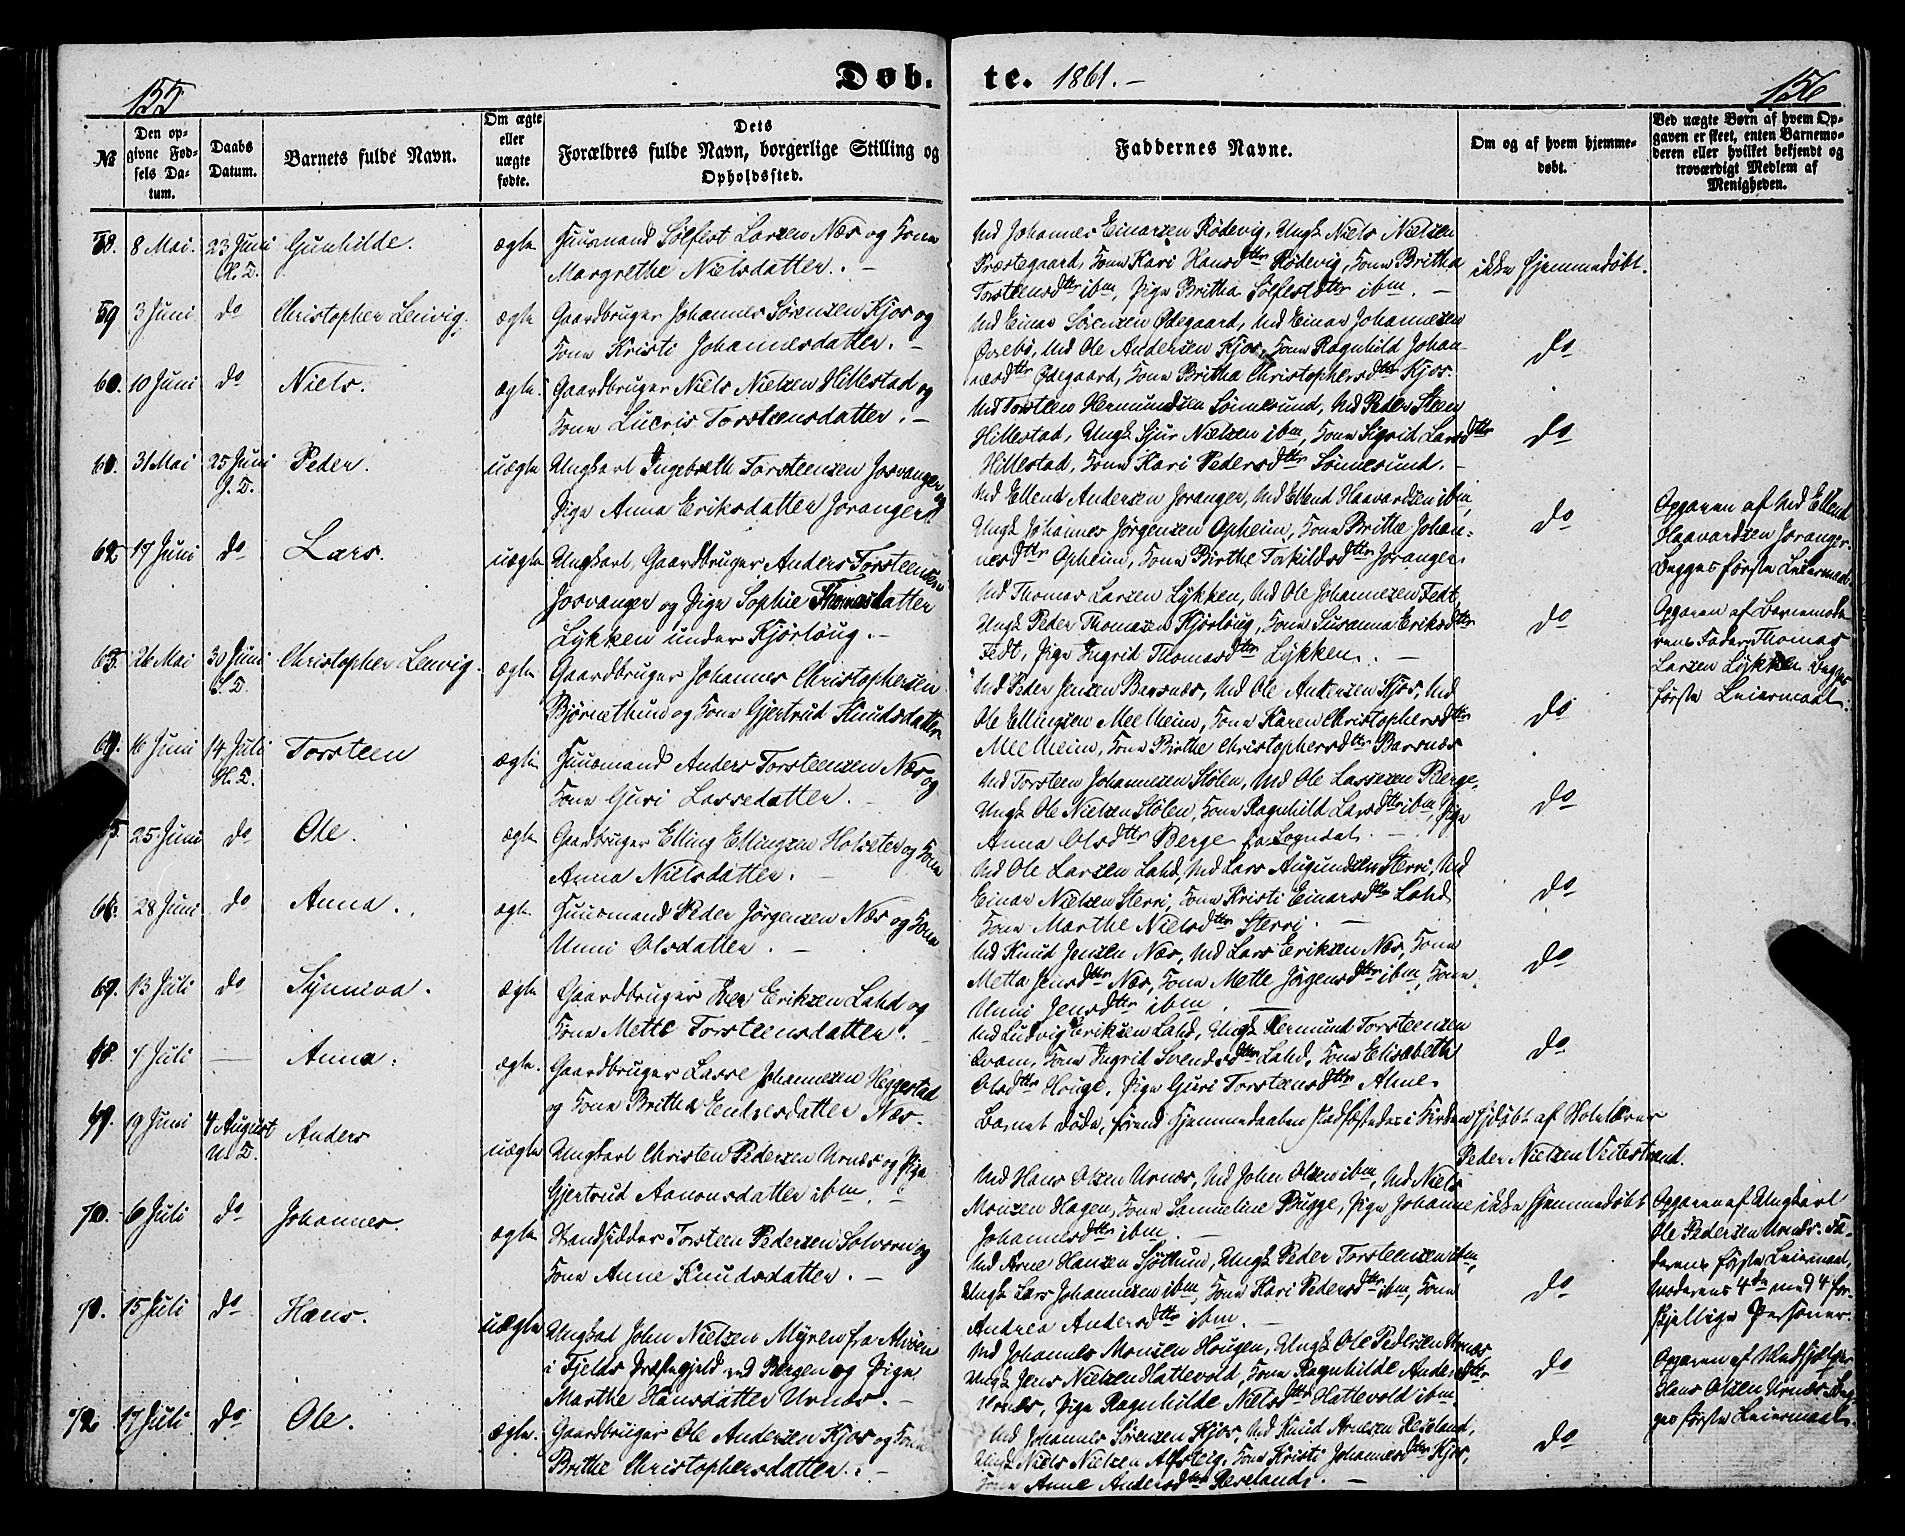 155
Døb-
te. 1861.-
156
No
Den op-
givne Fød-
sels Da-
tum.
Daabs
Datum.
Barnets fulde Navn.
Om ægte
eller
uægte
fødte.
Dets
Forældres fulde Navn, borgerlige Stilling og
Opholdssted.
Faddernes Navne.
Om og af hvem hjemme-
døbt.
Ved uægte Børn af hvem Op-
gaven er skeet, enten Barnemo-
deren eller hvilket bekjendt og
troværdigt Medlem af
Menigheden.
58. 8 Mai. 23 Juni Gunhilde. ægte Huusmand Sølfest Larsen Næs og Kone
H. T. Margrethe Nielsdatter. -
Md Johannes Einarsen Rødevig, Ungk Niels Nielsen
Præstegaard, Kone Kari Hansdttr Rødevig, Kone Britha
Torsteensdttr ibm, Pige Britha Sølfestdttr ibm. -
ikke hjemmedøbt.
59 3 Juni do Christopher Lenvig. ægte Gaardbruger Johannes Sørensen Kjos og
Kone Kristi Johannesdatter. -
Md Einar Sørensen Ødegaard, Md Einar Johannesen
Øvrebø, Md Ole Andersen Kjos, Kone Ragnhild Johan-
nesdttr Ødegaard, Kone Britha Christophersdttr Kjos.
do
60. 10 Juni do Niels. ægte. Gaardbruger Niels Nielsen Hillestad og
Kone Lucris Torsteensdatter. -
Md Torsteen Hermundsen Sønnesund, Md Peder Steen
Hillestad, Ungk Sjur Nielsen ibm, Kone Sigrid Larsdttr
Hillestad, Kone Kari Pedersdttr Sønnesund. -
do
61. 31 Mai 25 Juni Peder. uægte Ungkarl Ingebreth Torsteensen Josvanger og
J. T. Pige Anna Eriksdatter Joranger
Md Ellend Andersen Joranger, Md Ellend Haavardsen ibm,
Ungk Johannes Jørgensen Opheim, Kone Brithe Johan-
nesdttr Opheim, Kone Birthe Torkildsdttr Joranger
do
Opgaven af Md Ellend
Haavardsen Joranger.
Begges første Leiermaal.
62 17 Juni do Lars. uægte Ungkarl, Gaardbruger Anders Torsteensen
Josvanger og Pige Sophie Thomasdatter
Lykken under Kjørløug. -
Md Thomas Larsen Lykken, Md Ole Johannesen Fedt,
Ungk Peder Thomasen Kjørløug, Kone Susanna Eriksdttr
Fedt, Pige Ingrid Thomasdttr Lykken. -
do
Opgaven af Barnemode-
rens Fader Thomas
Larsen Lykken. Begges
første Leiermaal.
63. 26 Mai 30 Juni Christopher Lenvig. ægte Gaardbruger Johannes Christophersen
S. T. Bjørnethun og Kone Gjertrud Knudsdatter
Md Peder Jensen Barsnæs, Md Ole Andersen Kjos, Md
Ole Ellingsen Meelheim, Kone Karen Christophersdttr
Meelheim, Kone Birthe Christophersdttr Barsnæs
do
64. 16 Juni 14 Juli Torsteen ægte Huusmand Anders Torsteensen Næs og
H. T. Kone Guri Lassedatter. -
Md Torsteen Johannesen Stølen, Md Ole Lassesen Berge,
Ungk Ole Nielsen Stølen, Kone Ragnhild Larsdttr ibm, Pige
Anna Olsdttr Berge fra Sogndal. -
do
65. 25 Juni do Ole. ægte Gaardbruger Elling Ellingsen Holseter og Kone
Anna Nielsdatter. -
Md Ole Larsen Lahd, Md Lars Augundsen Sterri, Md
Einar Nielsen Sterri, Kone Kristi Einarsdttr Lahd,
Kone Marthe Nielsdttr Sterri. -
do
66. 28 Juni do Anna. ægte Huusmand Peder Jørgensen Næs og Kone
Unni Olsdatter. -
Md Knud Jensen Næs, Md Lars Eriksen Næs, Kone
Metta Jensdttr Næs, Kone Mette Jørgensdttr ibm, Kone
Unni Jensdttr ibm
do
67. 13 Juli do Synneva. ægte Gaardbruger Eriksen Lahd og
Kone Mette Torsteensdatter.
Md Ludvig Eriksen Lahd, Ungk Hermund Torsteensen
Kvam, Kone Ingrid Svendsdttr Lahd, Kone Elisabeth
Olsdttr Houge, Pige Guri Torsteensdttr Alme.
do
68. 7 Juli — Anna. ægte. Gaardbruger Lasse Johannesen Heggestad
og Kone Britha Endresdatter Næs.
Barnet døde, førend Hjemmedaaben stadfæstedes i Kirken hjdøbt af Skolelærer
Peder Nielsen Veitestrand.
69. 19 Juni 4 August Anders uægte Ungkarl Christen Pedersen Urnæs og Pige
U. T. Gjertrud Aanonsdatter ibm.
Md Hans Olsen Urnæs, Md John Olsen ibm, Md Niels
Monsen Hagen, Kone Samueline Bugge, Pige Johanne
Johannesdttr ibm. -
ikke hjemmedøbt
Opgaven af Ungkarl
Ole Pedersen Urnæs. Fa-
derens første Leiermaal,
Moderens 4de med 4 for-
skjellige Personer.
70. 6 Juli do Johannes. ægte Strandsidder Torsteen Pedersen Solvorn og
Kone Anne Knudsdatter. -
Md Arne Hansen Sjøthun, Ungk Peder Torsteensen ibm,
Ungk Lars Johannesen ibm, Kone Kari Pedersdttr ibm, Kone
Andrea Andersdttr ibm. -
do
71. 15 Juli do Hans. uægte Ungkarl John Nielsen Myren fra Alvøen
i Fjelds Præstegjeld ved Bergen og Pige
Marthe Hansdatter Urnæs. -
Md Johannes Monsen Hougen, Ungk Ole Pedersen Urnæs
Ungk Jens Nielsen Hattevold, Kone Ragnhilde Andersdttr
Urnæs, Pige Ragnhilde Nielsdttr Hattevold ibm.
do
Opgaven af Medhjelper
Hans Olsen Urnæs. Beg-
ges første Leiermaal.
72 17 Juli do Ole. ægte. Gaardbruger Ole Andersen Kjos og Kone
Brithe Christophersdatter. -
Md Johannes Sørensen Kjos, Md Knud Arnesen Reseland,
Ungk Niels Nielsen Alsteig, Kone Kristi Johannesdttr Kjos,
Kone Anne Andersdttr Reseland. -
do